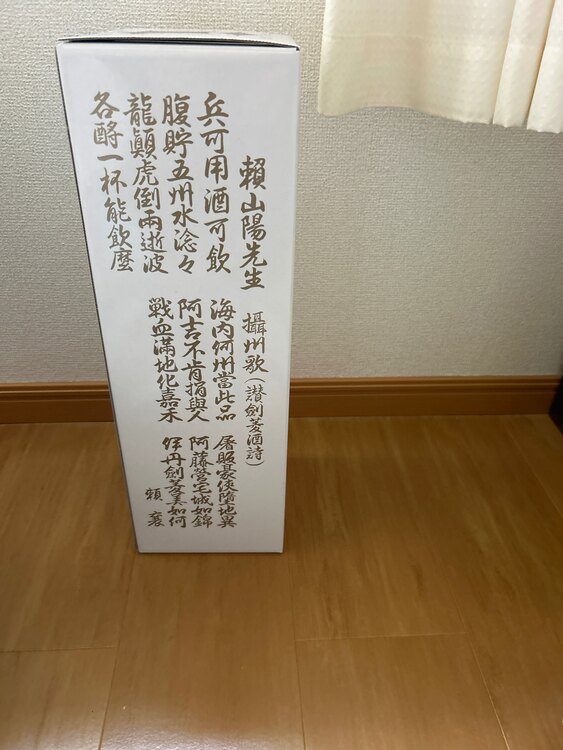 賴山陽先生 攝州歌(讃劍菱酒詩)
兵可用酒可飲 海内何州當此品 屠販豪俠墮地異
腹貯五州水淰々 阿吉不肯捐與人 阿藤營宅城如錦
龍顛虎倒兩逝波 戰血滿地化嘉禾 伊丹劍菱美如何
各酹一杯能飲麼 賴襄